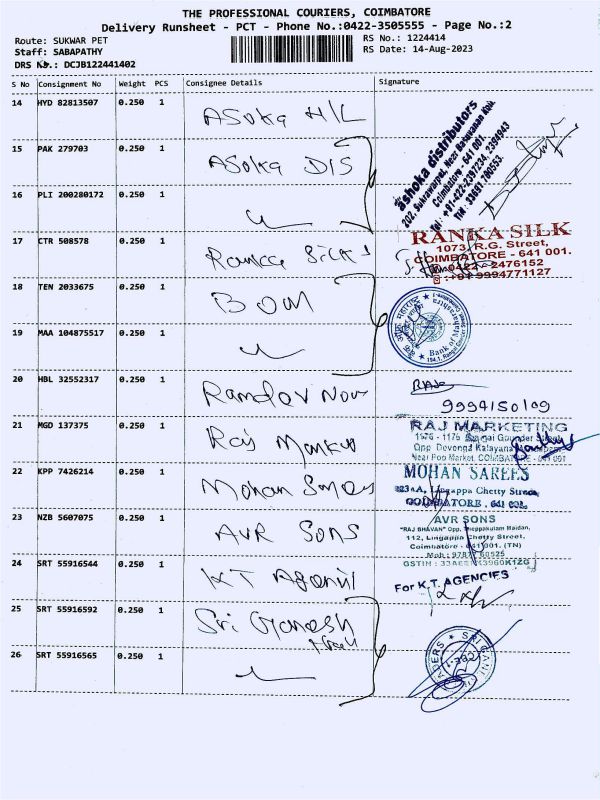 THE PROFESSIONAL COURIERS, COIMBATORE
Delivery Runsheet - PCT - Phone No.:0422-3505555 - Page No.:2
Route: SUKWAR PET
RS No.: 1224414
Staff: SABAPATHY
RS Date: 14-Aug-2023
DRS No.: DCJB122441402
S No Consignment No Weight PCS Consignee Details Signature
14 HYD 82813507 0.250 1 Asoka H/L
15 PAK 279703 0.250 1 Asoka DIS
ashoka distributors
Coimbatore - 641 001.
Tel : +91-422-2397234, 2394943
16 PLI 200280172 0.250 1
17 CTR 508578 0.250 1 Ranka Silks
RANKA SILK
1073, R.G. Street,
COIMBATORE - 641 001.
0422-2476152
+91 9994771127
18 TEN 2033675 0.250 1 BOM
Bank of
19 MAA 104875517 0.250 1
20 HBL 32552317 0.250 1 Ramdev Nov
9994150109
21 MGD 137375 0.250 1 Raj Market
RAJ MARKETING
Near Poo Market, COIMBATORE - 641 001
22 KPP 7426214 0.250 1 Mohan Sarees
MOHAN SAREES
Lingappa Chetty Street,
COIMBATORE. 641 001.
23 NZB 5607075 0.250 1 AVR SONS
AVR SONS
"RAJ BHAVAN" Opp. Theppakulam Maidan,
112, Lingappa Chetty Street,
Coimbatore - 641 001. (TN)
24 SRT 55916544 0.250 1 KT Agencil
For K.T. AGENCIES
25 SRT 55916592 0.250 1 Sri Ganesh
26 SRT 55916565 0.250 1